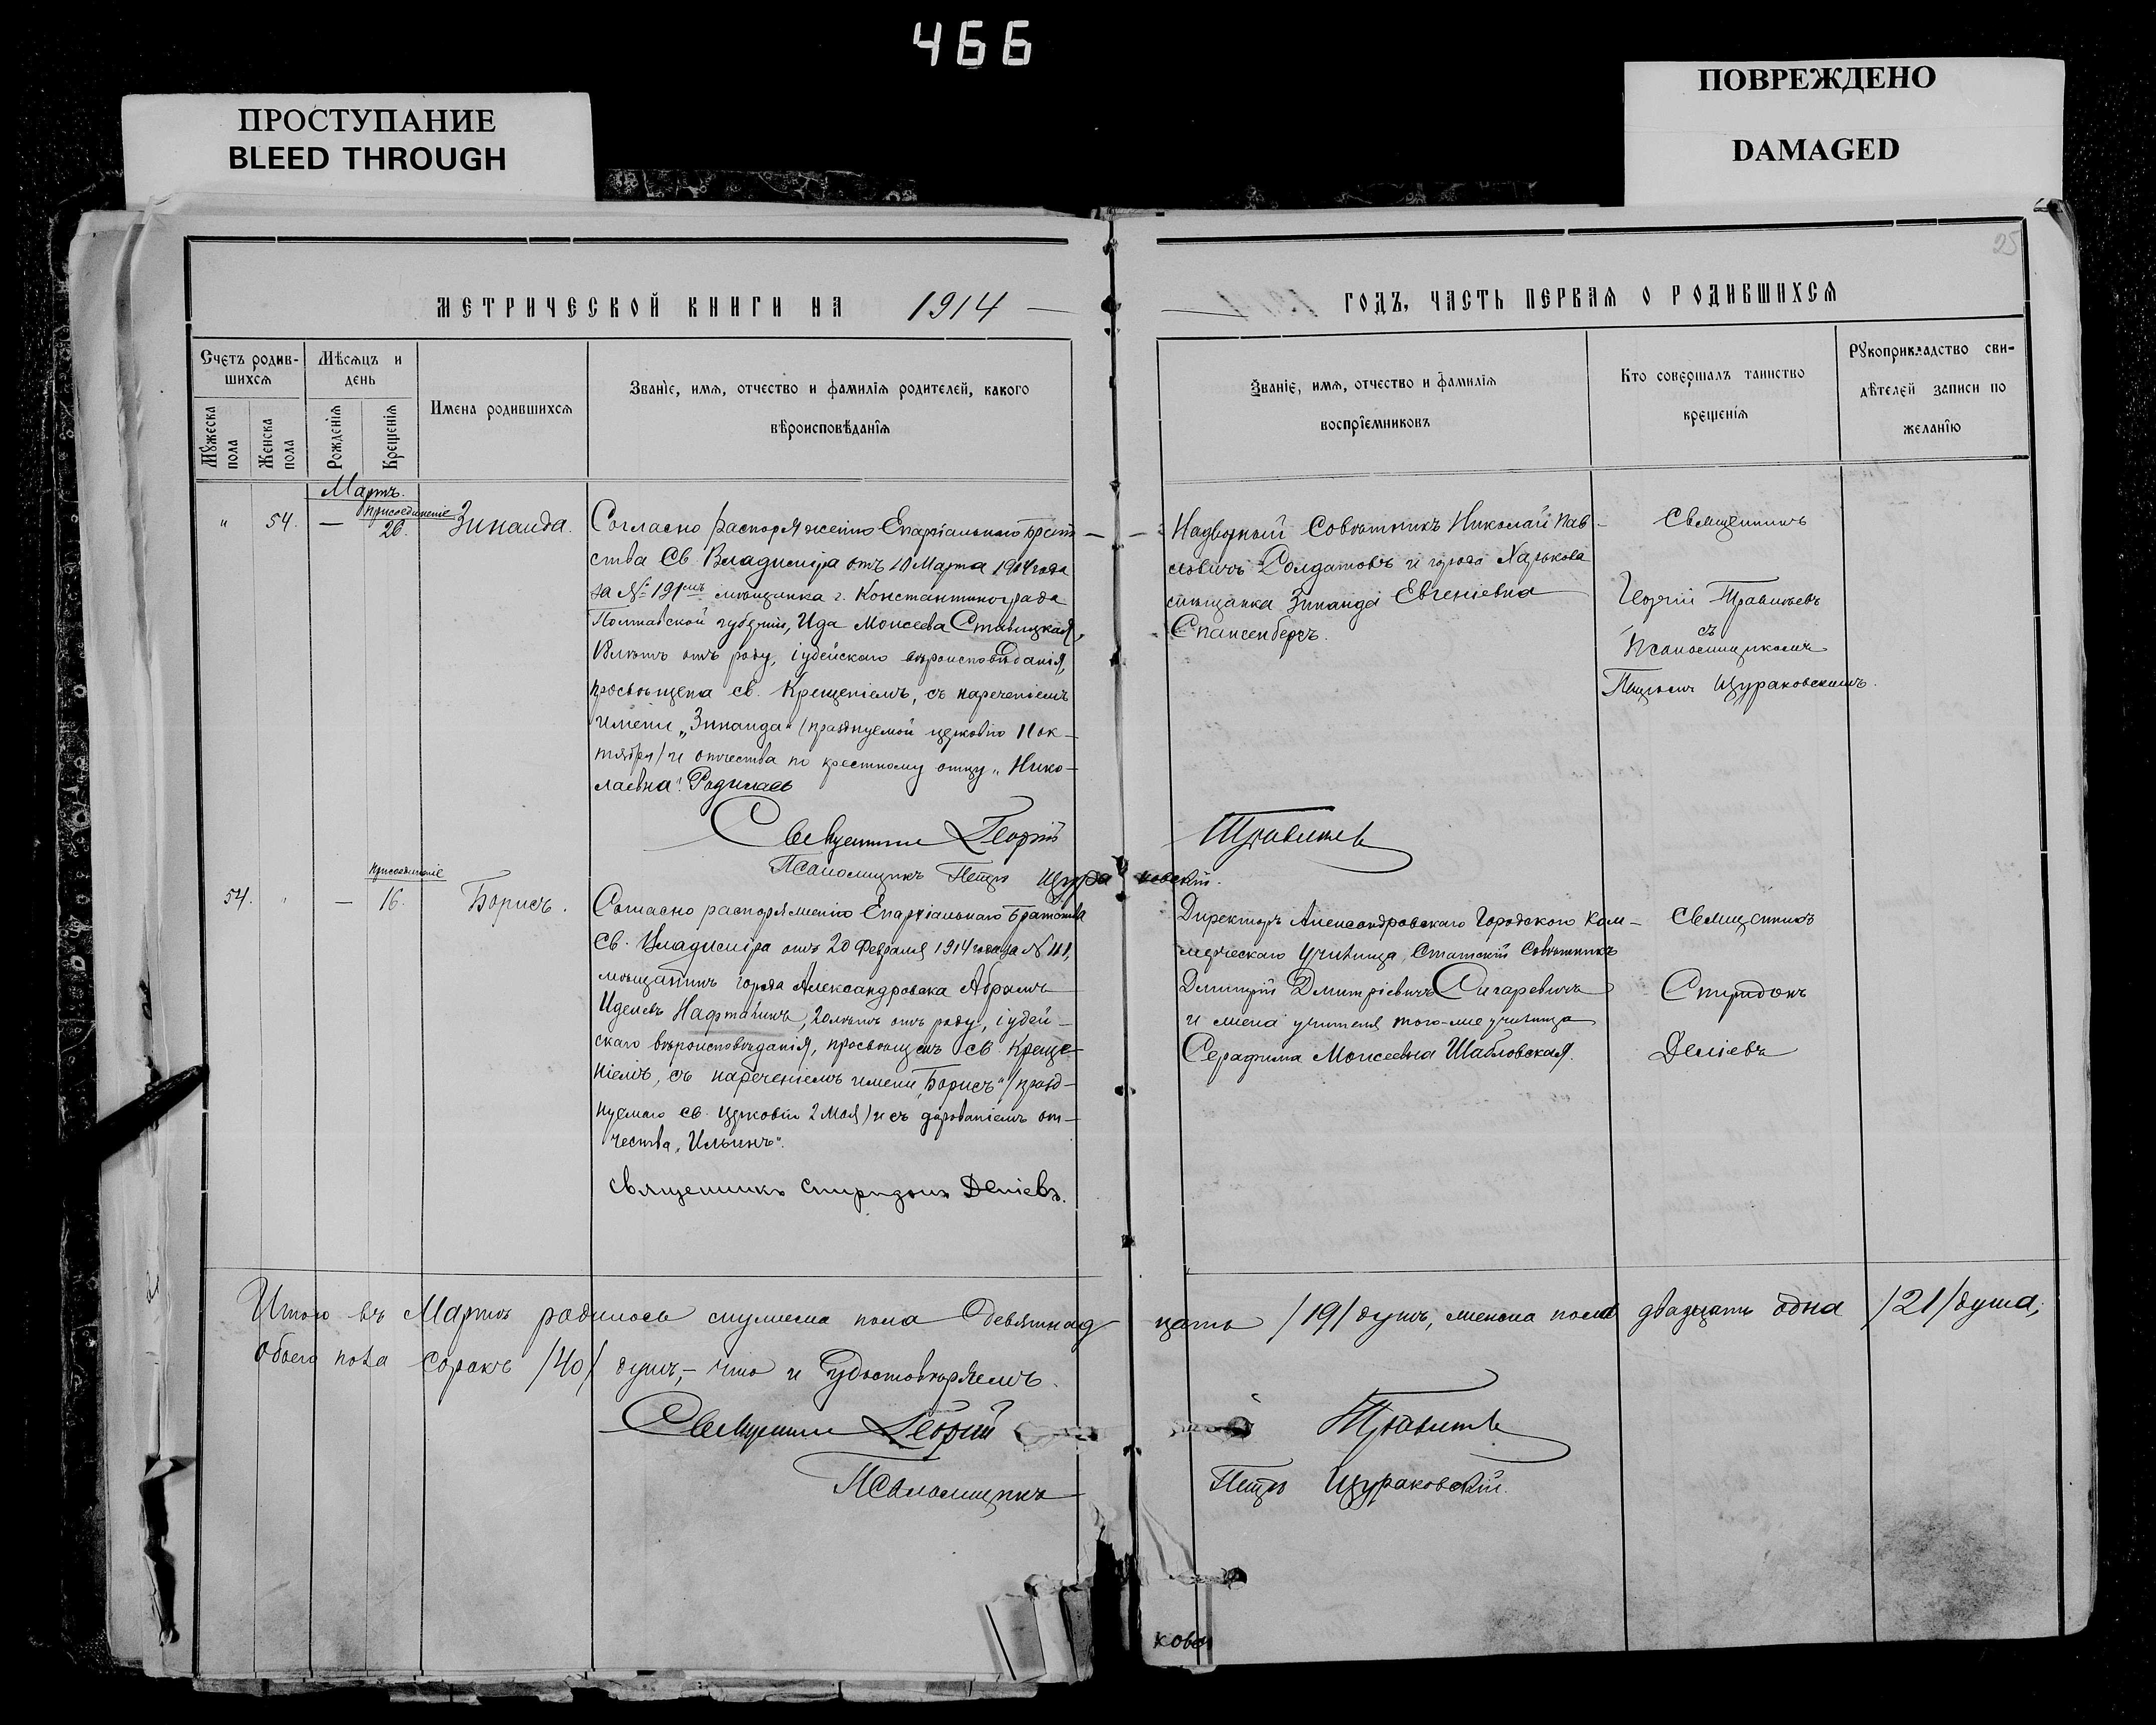 466
ПРОСТУПАНИЕ
BLEED THROUGH
ПОВРЕЖДЕНО
DAMAGED
25
МЕТРИЧЕСКОЙ КНИГИ НА 1914
ГОДЪ, ЧАСТЬ ПЕРВАЯ О РОДИВШИХСЯ
Счетъ родив-
шихся
Мужеска пола
Женска пола
Мѣсяцъ и
день
Рожденія
Крещенія
Имена родившихся
Званіе, имя, отчество и фамилія родителей, какого
вѣроисповѣданія
Званіе, имя, отчество и фамилія
воспріемниковъ
Кто совершалъ таинство
крещенія
Рукоприкладство сви-
дѣтелей записи по
желанію
Мартъ.
Присоединеніе
" 54. — 26. Зинаида.
Согласно распоряженію Епархіальнаго Брат-
ства Св. Владиміра отъ 10 Марта 1914 года
за № мѣщанка г. Константинограда
Полтавской губерніи, Ида Моисеева Ставицкая,
лѣтъ отъ роду, іудейскаго вѣроисповѣданія,
просвѣщена св. Крещеніемъ, съ нареченіемъ
имени „Зинаида" (празднуемой церковію 11 ок-
тября) и отчества по крестному отцу „Нико-
лаевна". Родилась
Священникъ Георгій Травинъ
Псаломщикъ Петръ Щураковскій.
Надворный Совѣтникъ Николай Пав-
ловичъ Солдатовъ и города Харькова
мѣщанка Зинаида Евгеніевна
Священникъ
Георгій
съ
Псаломщикомъ
Петромъ Щураковскимъ.
Присоединеніе
54. " — 16. Борисъ.
Согласно распоряженію Епархіальнаго Братства
Св. Владиміра отъ 20 Февраля 1914 года за №
мѣщанинъ города Александровска Абрамъ
Иделевъ Нафталинъ, 20 лѣтъ отъ роду, іудей-
скаго вѣроисповѣданія, просвѣщенъ св. Креще-
ніемъ, съ нареченіемъ имени „Борисъ" (празд-
нуемаго св. Церковію 2 Мая) и съ дарованіемъ от-
чества „Ильинъ".
Священникъ Спиридонъ Деміевъ.
Директоръ Александровскаго Городского Ком-
мерческаго Училища, Статскій Совѣтникъ
Дмитрій Дмитріевичъ Сигаревичъ
и жена учителя того-же училища
Серафима Моисеевна Шабловская.
Священникъ
Спиридонъ
Деміевъ
Итого въ Мартѣ родилось мужеска пола девятнадцать /19/ душъ, женска пола двадцать одна /21/ душа;
обоего пола сорокъ /40/ душъ, — что и удостовѣряемъ.
Священникъ Георгій Травинъ
Псаломщикъ Петръ Щураковскій.